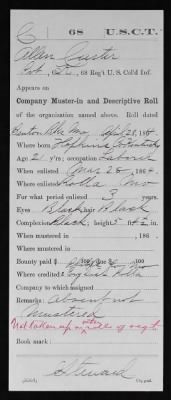 C 68 U.S.C.T.
Allen Custer
Pvt, Co. E, 68 Reg't U. S. Col'd Inf.
Appears on
Company Muster-in and Descriptive Roll
of the organization named above. Roll dated
Benton Bks Mo, April 23, 186
Where born Hopkins Co Kentucky
Age 21 y'rs; occupation Laborer
When enlisted Mar 28, 1864
Where enlisted Rolla Mo
For what period enlisted 3 years.
Eyes Black; hair Black
Complexion Black; height 5 ft. in.
When mustered in , 186 .
Where mustered in
Bounty paid $ 100; due $ 100
Where credited
Company to which assigned
Remarks: absent not
mustered
Not taken up on other rolls of regt.
Book mark:
Steward
Copyist.